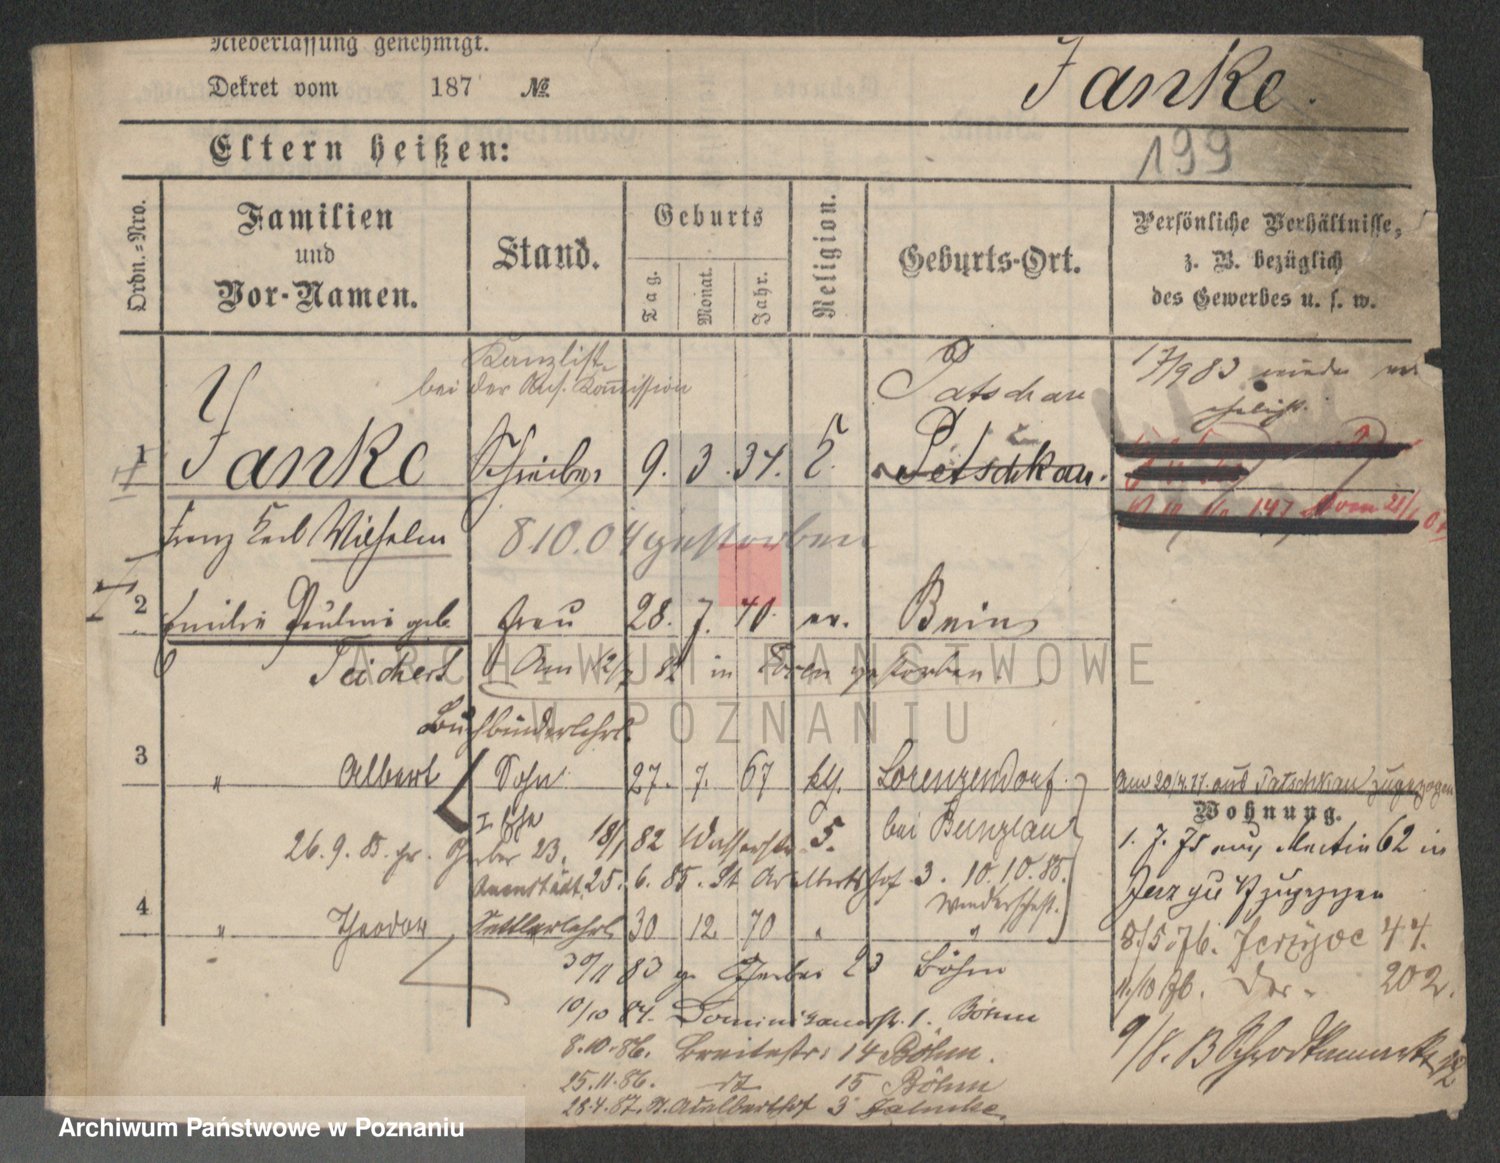 Niederlassung genehmigt.
Dekret vom 187 №
Janke.
199
Eltern heißen:
Ordn.-Nro.
Familien
und
Vor-Namen.
Stand.
Geburts
Tag.
Monat.
Jahr.
Religion.
Geburts-Ort.
Persönliche Verhältnisse,
z. B. bezüglich
des Gewerbes u. s. w.
Kanzlist
bei der Aus. Komission
Patschkau
17/9 83 wieder ver
ehelicht.
1 Janke Schreiber 9. 3. 34. E. Petschkau.
147 vom 21/
Franz Carl Wilhelm 8 10.04 gestorben
2 Emilie Pauline geb. Frau 28. 7. 40. ev.
Teichert Am 12/7 82 in Posen gestorben.
Buchbinderlehrl.
3 " Albert Sohn 27. 7. 67 kth. Lorenzendorf Am 20/4.77. aus Patschkau zugezogen
bei Bunzlau
Wohnung.
26. 9. 85. Gerber 23. 18/1 82 Wasserstr 5.
1. 7. 75 aus Martin 62 in
25. 6. 85. St Adalbertshof 3. 10. 10. 85.
Jerzyce zugezogen
4 " Theodor Sattlerlehrl. 30 12. 70 " "
8/5.76. Jerzyce 44.
30/11 83 gr. Gerber 23 Böhm
11/10 76. Do. - 202.
10/10 84. Dominikanerstr. 1. Böhm
8.10.86. Breitestr. 14 Böhm.
9/8. Schrodkamarkt 12
25.11.86. dt 15 Böhm
28.4.87. St. Adalberthof 3
ARCHIWUM PAŃSTWOWE
W POZNANIU
Archiwum Państwowe w Poznaniu